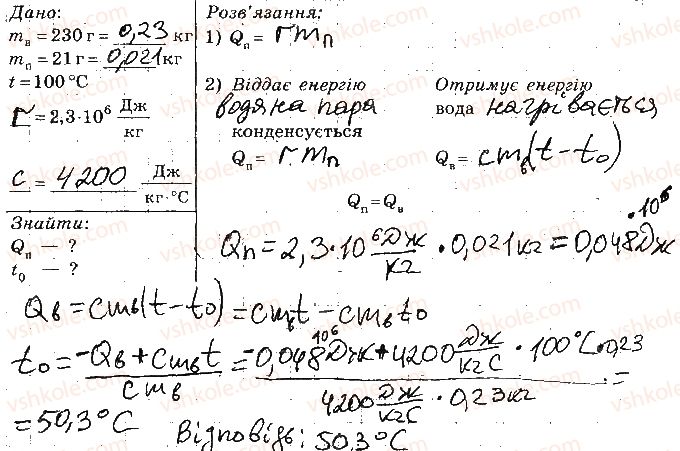 Дано:
m_в = 230 г = 0,23 кг
m_п = 21 г = 0,021 кг
t = 100 °C
r = 2,3·10⁶ Дж/кг
c = 4200 Дж/кг·°C
Знайти:
Q_п — ?
t₀ — ?
Розв'язання:
1) Q_п = r m_п
2) Віддає енергію
водяна пара
конденсується
Q_п = r m_п
Отримує енергію
вода нагрівається
Q_в = cm_в(t − t₀)
Q_п = Q_в
Q_п = 2,3·10⁶ Дж/кг · 0,021 кг = 0,048 · 10⁶ Дж
Q_в = cm_в(t − t₀) = cm_вt − cm_вt₀
t₀ = −Q_в + cm_вt / cm_в = −0,048 10⁶ Дж + 4200 Дж/кг C · 100°C · 0,23 / 4200 Дж/кг C · 0,23 кг =
= 50,3°C
Відповідь: 50,3°C
vshkole.com